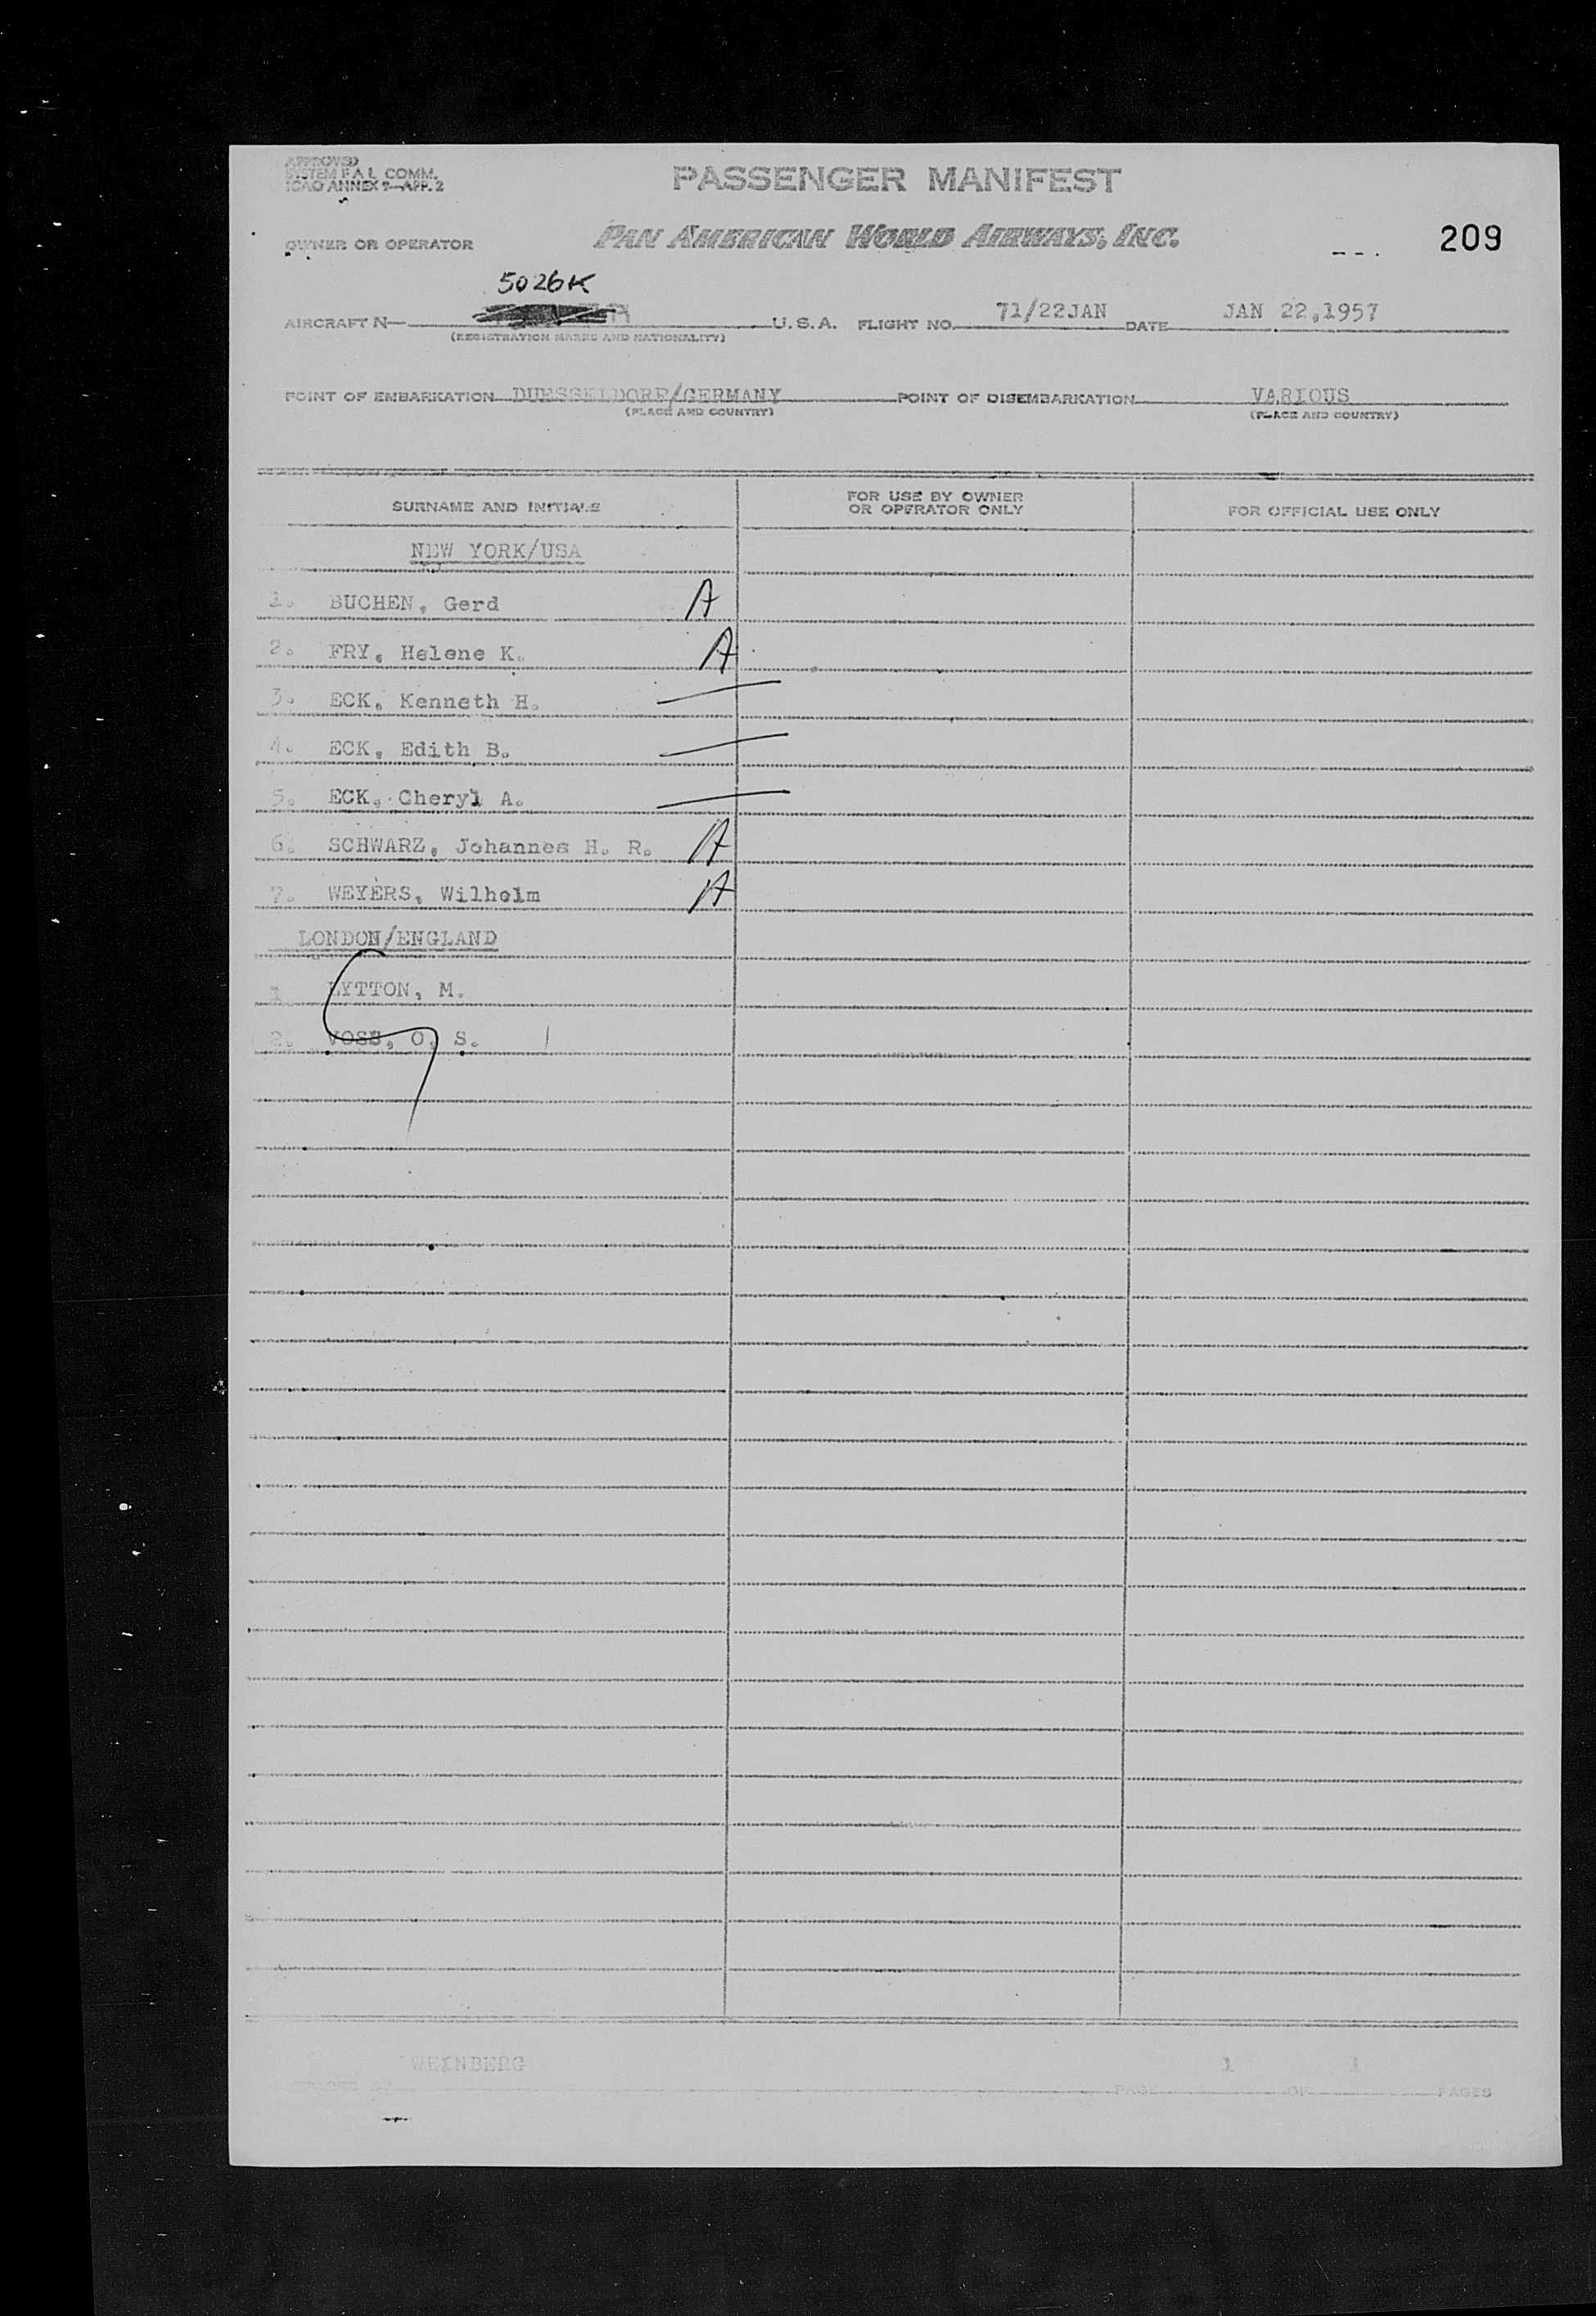 APPROVED
SYSTEM F A L COMM.
ICAO ANNEX 9—APP. 2
PASSENGER MANIFEST
OWNER OR OPERATOR PAN AMERICAN WORLD AIRWAYS, INC. 209
5026K
AIRCRAFT N— U.S.A. FLIGHT NO. 71/22JAN DATE JAN 22,1957
(REGISTRATION MARKS AND NATIONALITY)
POINT OF EMBARKATION DUESSELDORF/GERMANY POINT OF DISEMBARKATION VARIOUS
(PLACE AND COUNTRY) (PLACE AND COUNTRY)
SURNAME AND INITIALS FOR USE BY OWNER OR OPERATOR ONLY FOR OFFICIAL USE ONLY
NEW YORK/USA
1. BUCHEN, Gerd A
2. FRY, Helene K. A
3. ECK, Kenneth H.
4. ECK, Edith B.
5. ECK, Cheryl A.
6. SCHWARZ, Johannes H. R. A
7. WEYERS, Wilhelm A
LONDON/ENGLAND
1. LYTTON, M.
2. VOSS, O. S.
WEINBERG 1 1
PAGE OF PAGES